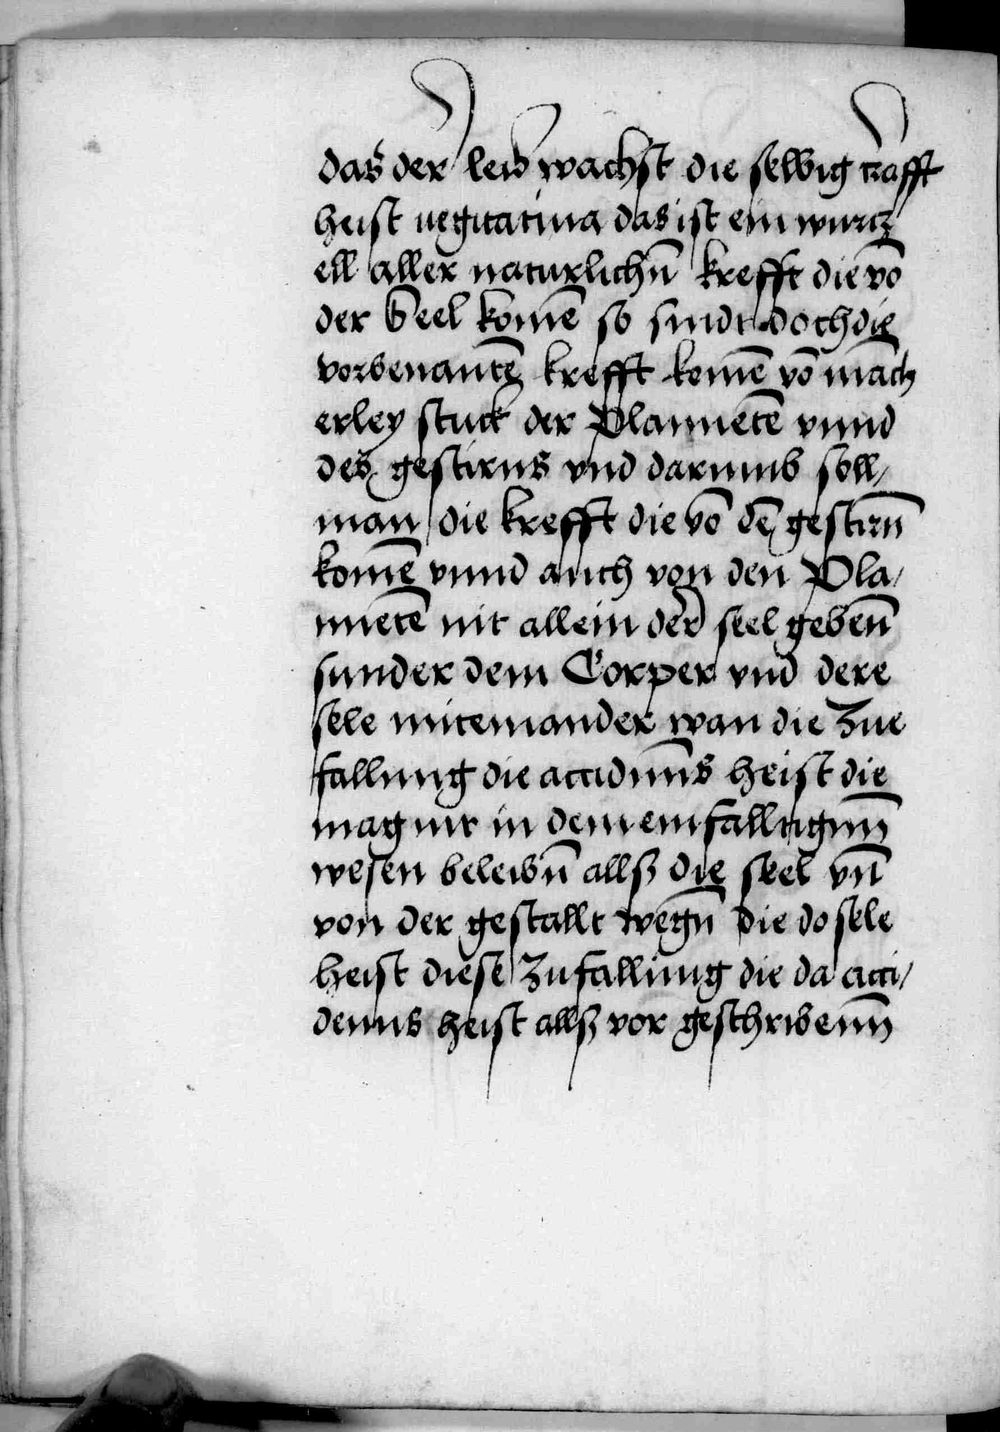 das der leib wachst die selbig crafft
heist uegitatiua das ist ein wurtz
ell aller naturlichn̄ krefft die vō
der Seel komē so sindt doch die
vorbenantē krefft komē vō mach
erley stuck der Plannetē vnnd
des gestirns vnd darumb soll/
man die krefft die vō dē gestirn̄
komē vnnd auch von den Pla/
nnetē nit allein der seel geben̄
sunder dem Corper vnd dere
sele miteinander wan die Zue
fallung die accidnn̄s heist die
mag nit in dem einfalltignn̄
wesen beleibn̄ allß die seel vn̄
von der gestallt wegn̄ die do sele
heist diese Zufallung die da acci/
denns heist allß vor geschribenn̄